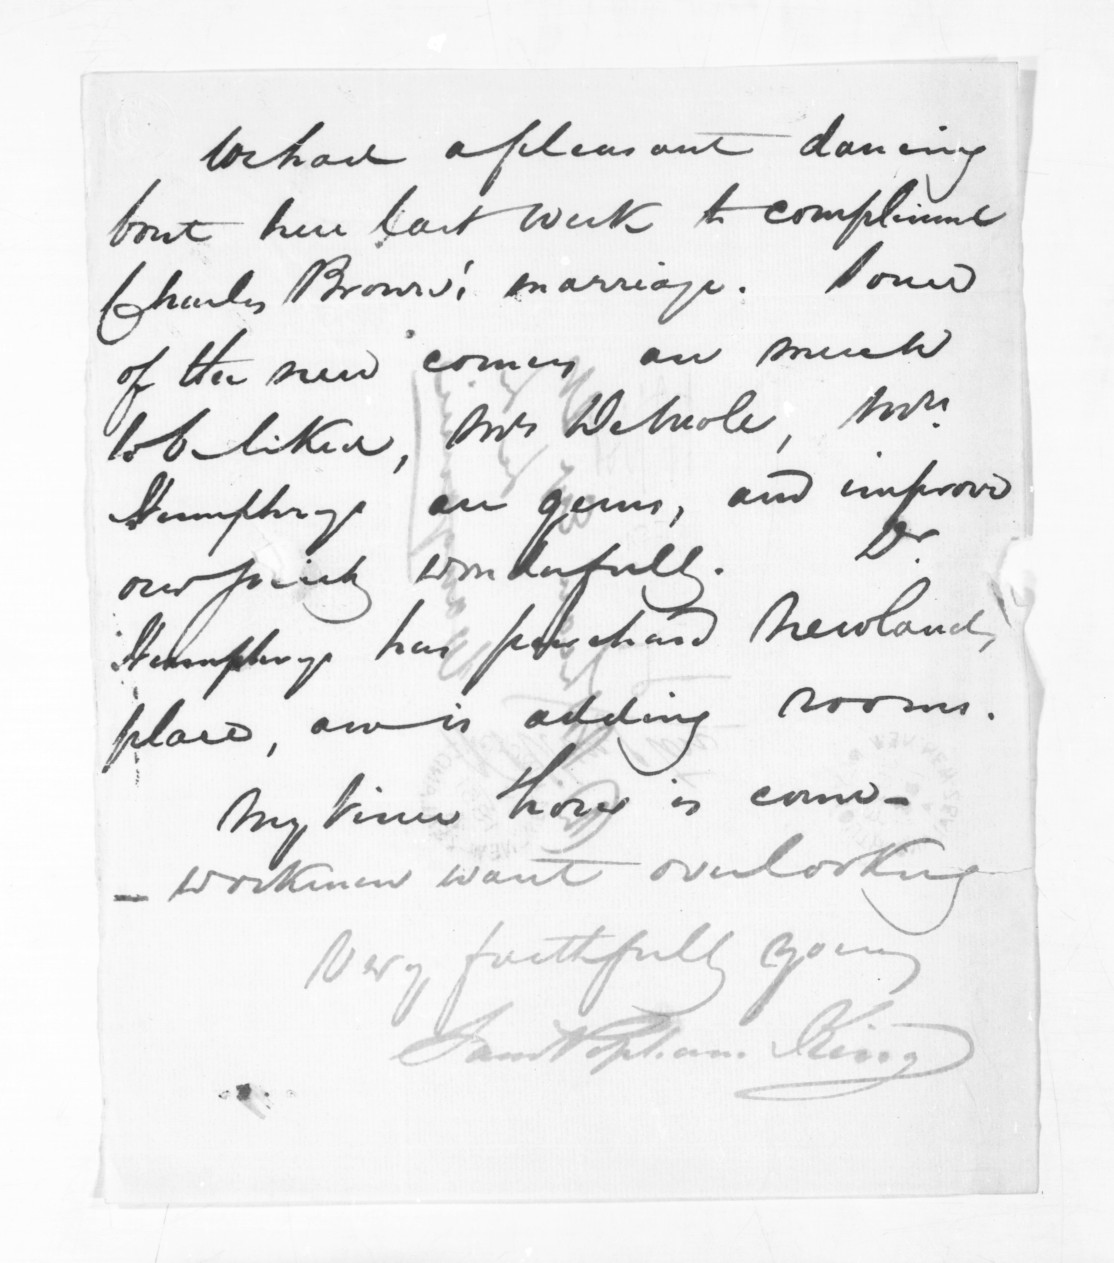 We had a pleasant dancing
bout here last week to compliment
Charles Brown's marriage. Some
of the new comers are much
to be liked, Mrs , Mrs.
Humphrys are gems, and improve
our society wonderfully. Dr.
Humphrys has purchased Newlands
place, and is adding rooms.
My time how is come -
- workmen want overlooking
Very faithfully yours
Saml Popham King